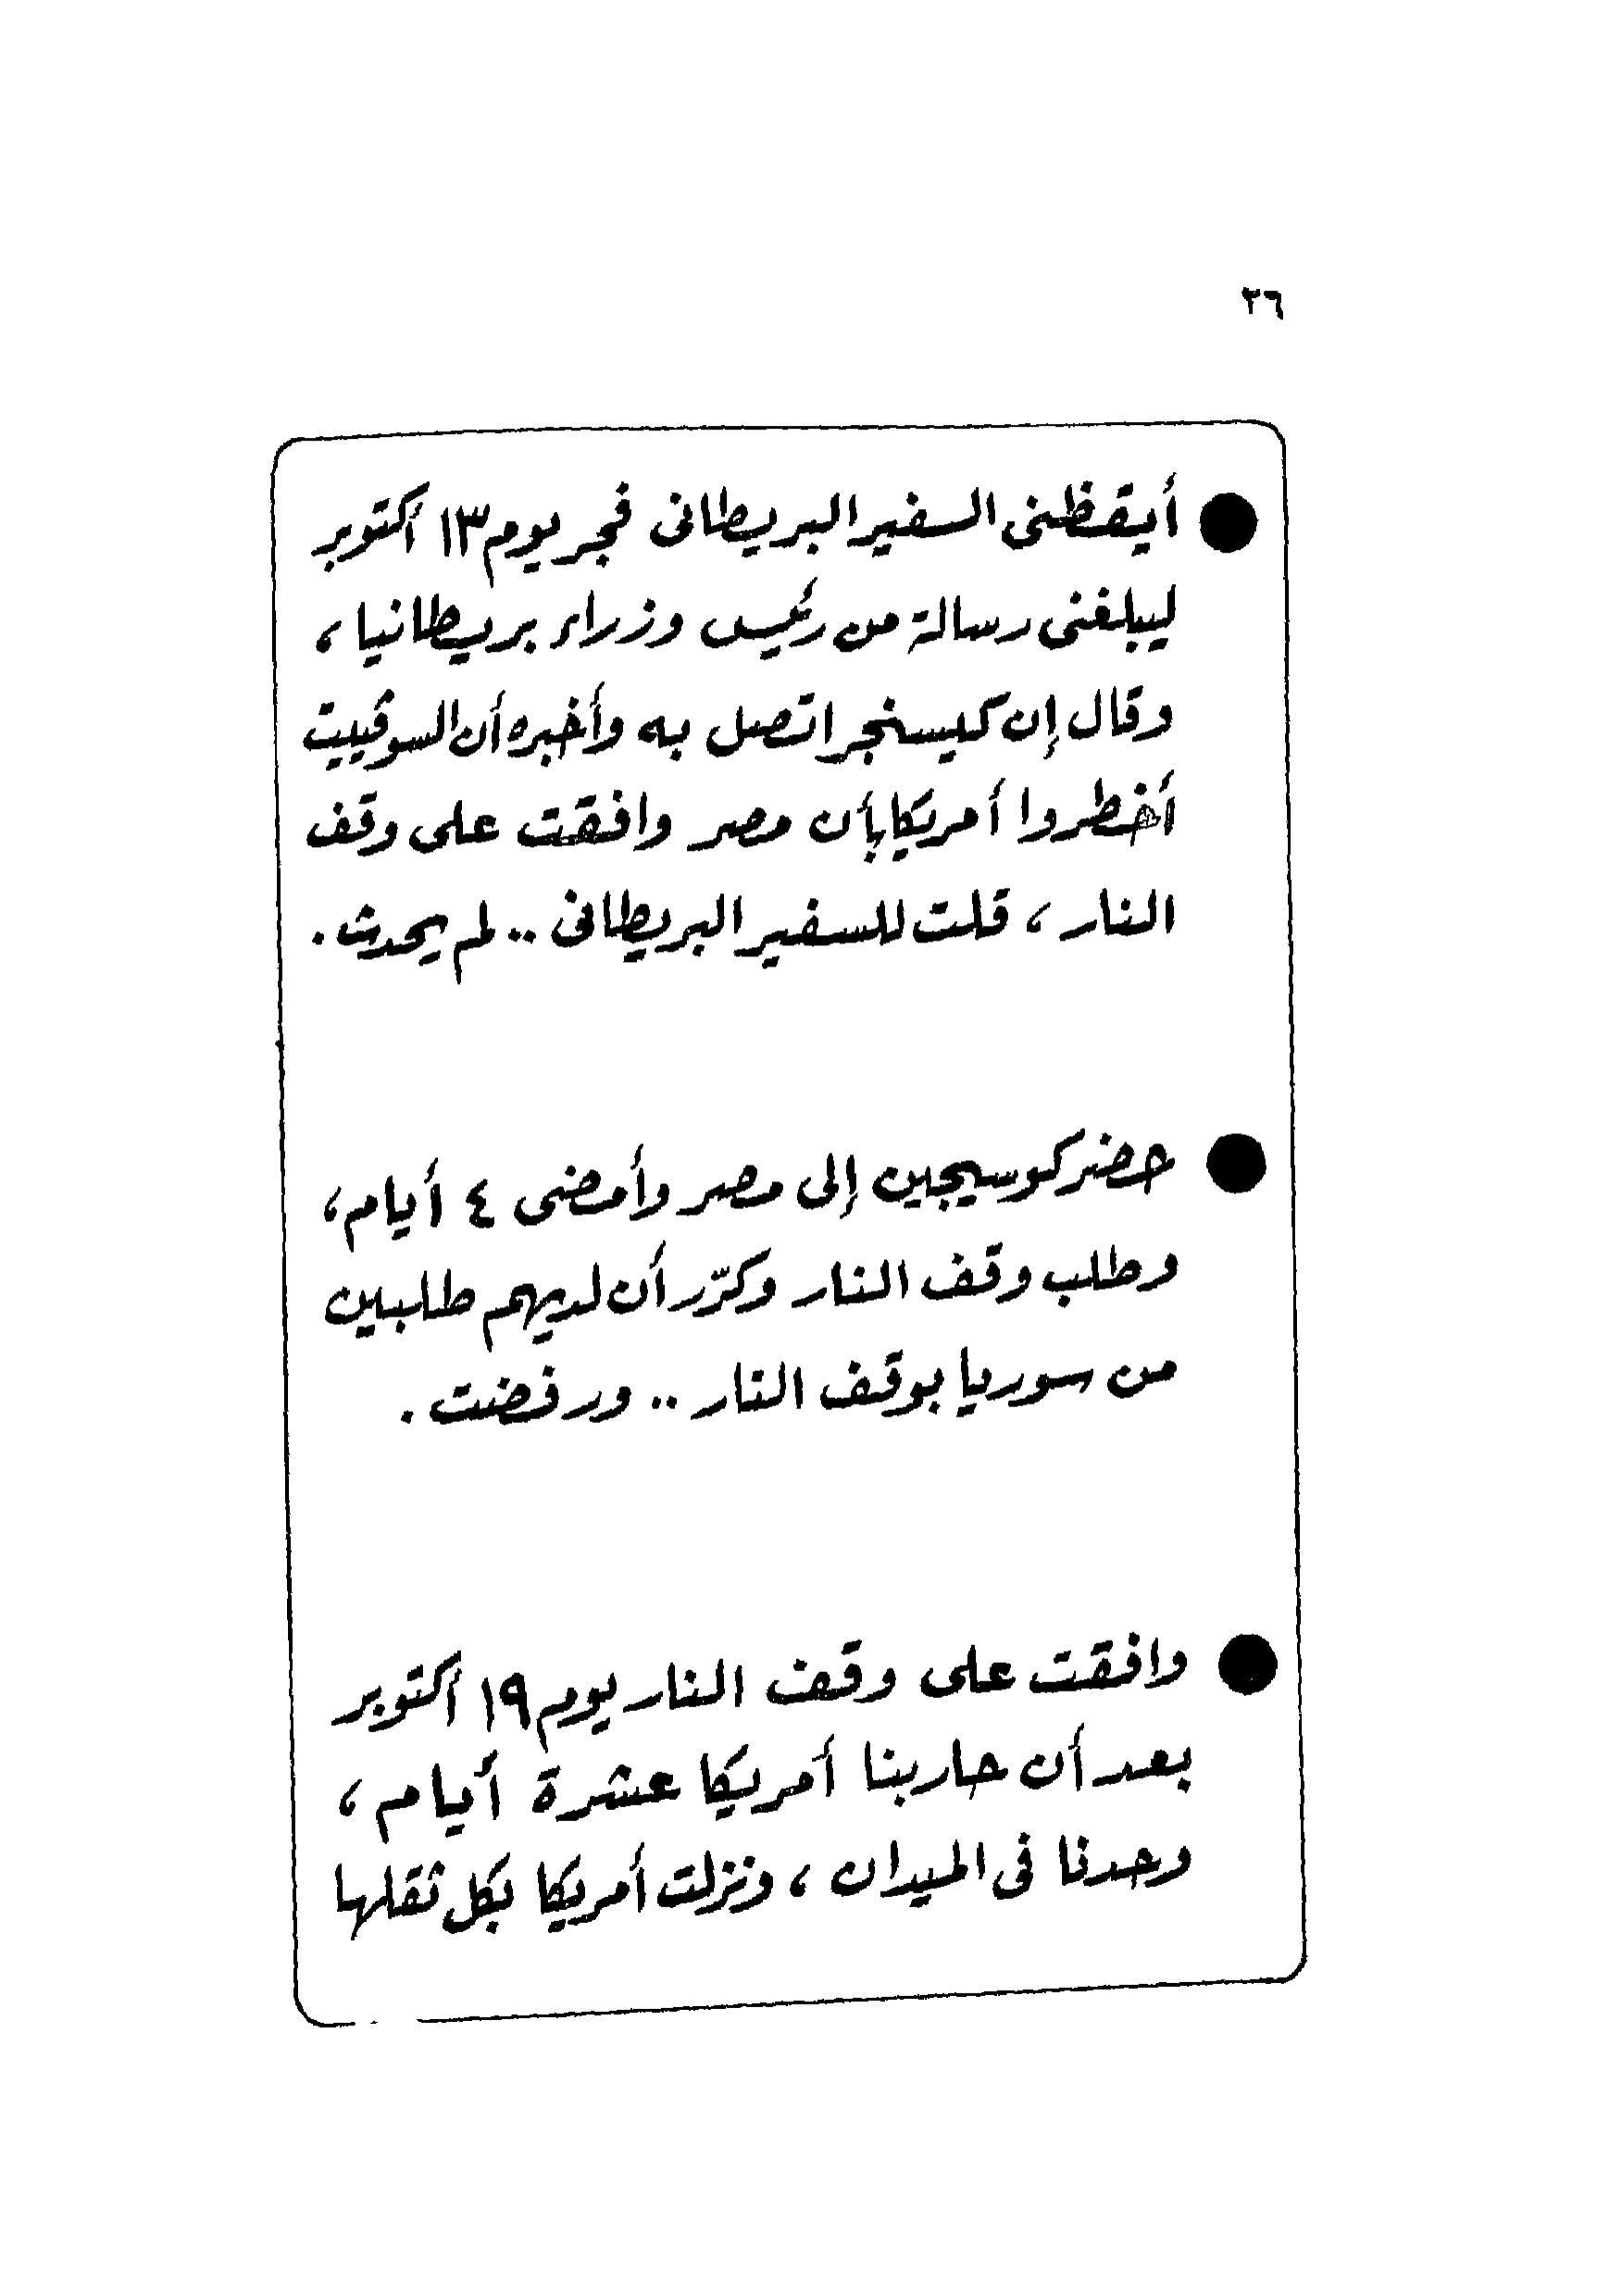 ٢٦
● أيقظنى السفير البريطانى فجر يوم ١٣ أكتوبر
ليبلغنى رسالة من رئيس وزراء بريطانيا ،
وقال إن كيسنجر اتصل به وأخبره أن السوڤييت
أخطروا أمريكا بأن مصر وافقت على وقف
النار ، قلت للسفير البريطانى .. لم يحدث .
● حضر كوسيجين إلى مصر وأمضى ٤ أيام ،
وطلب وقف النار وكرّر أن لديهم طلبين
من سوريا بوقف النار .. ورفضت .
● وافقت على وقف النار يوم ١٩ أكتوبر
بعد أن حاربنا أمريكا عشرة أيام ،
وحدنا فى الميدان ، ونزلت أمريكا بكل ثقلها